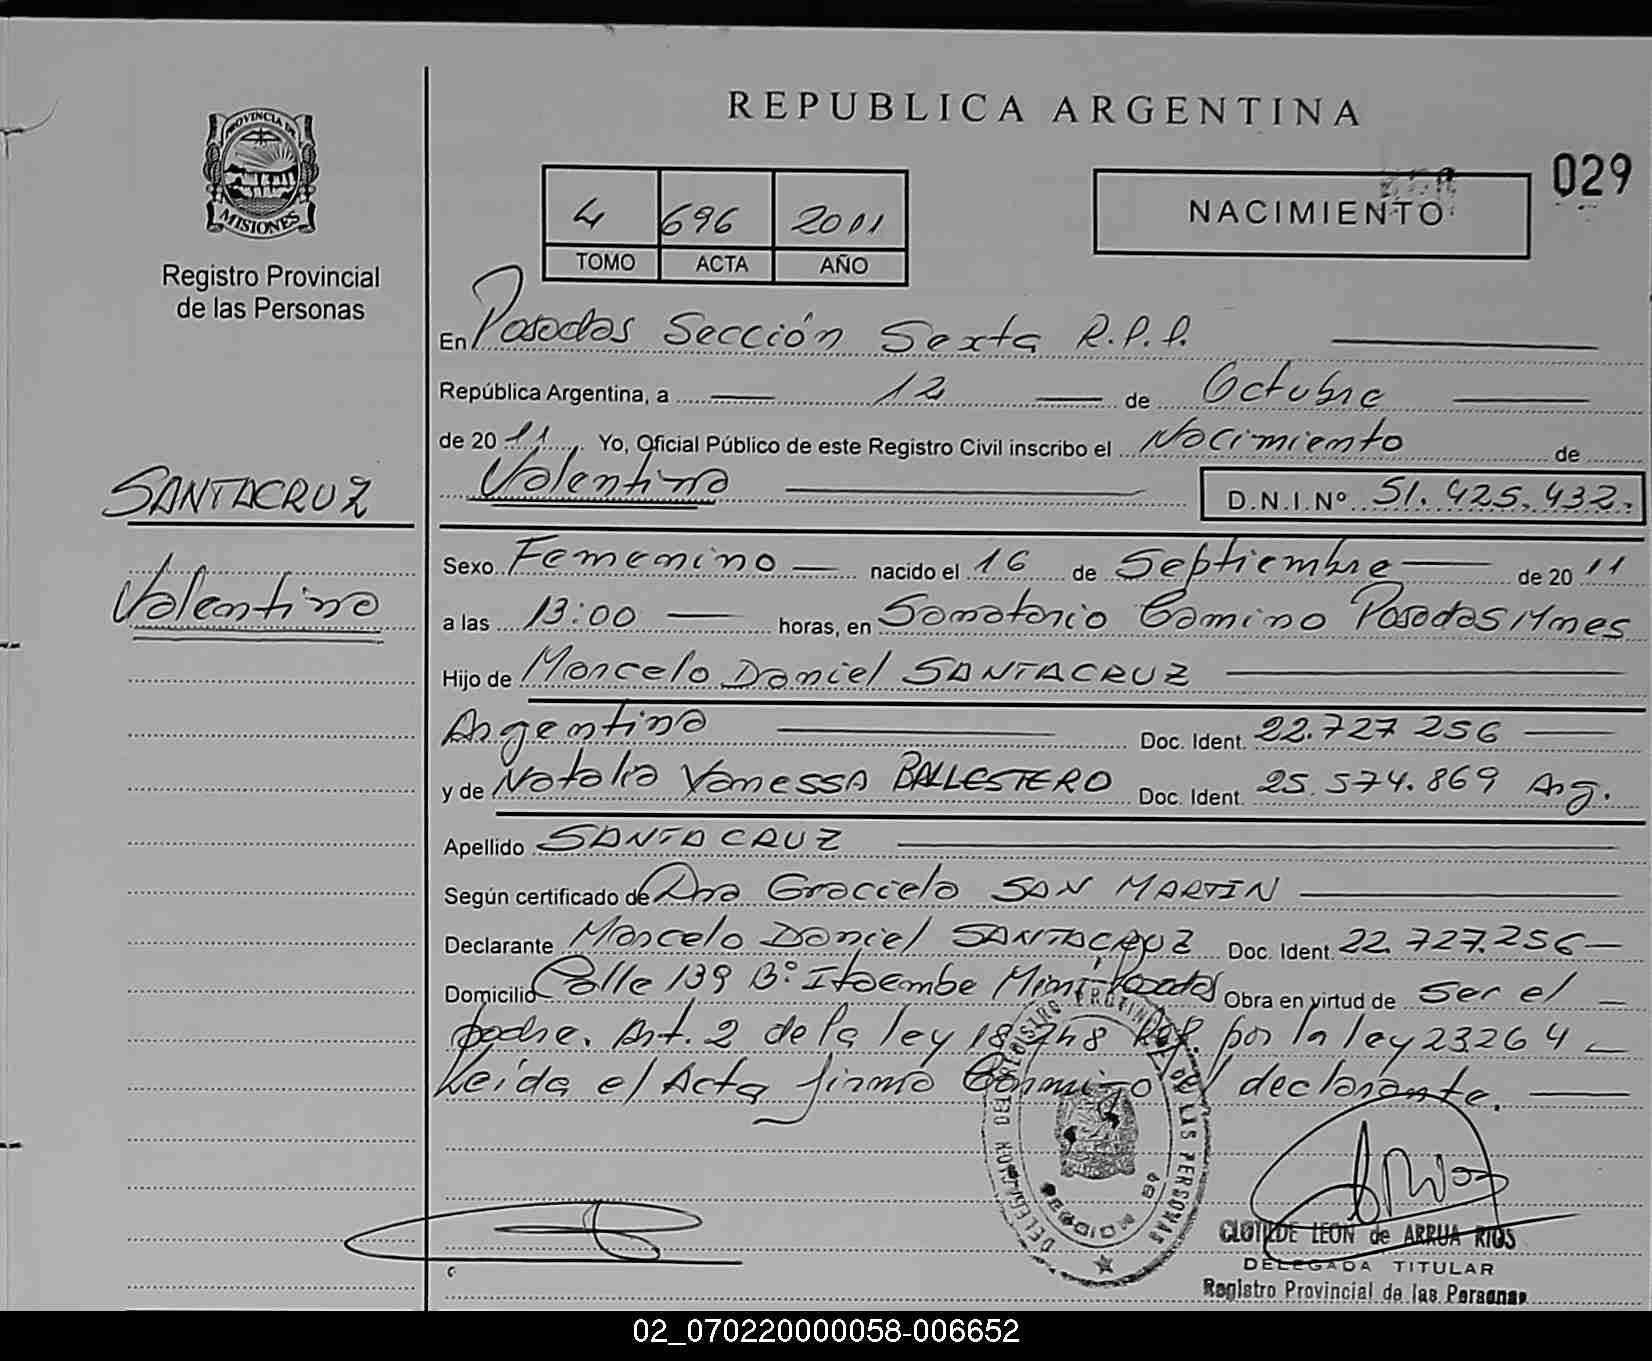 REPUBLICA ARGENTINA
029
PROVINCIA DE
MISIONES
Registro Provincial
de las Personas
4 696 2011
TOMO ACTA AÑO
NACIMIENTO
En Posadas Sección Sexta R.P.P.
República Argentina, a 12 de Octubre
de 2011 Yo, Oficial Público de este Registro Civil inscribo el Nacimiento de
Valentina D.N.I.Nº 51.425.432.
SANTACRUZ
Valentina
Sexo Femenino nacido el 16 de Septiembre de 2011
a las 13:00 horas, en Sanatorio Camino Posadas Mnes
Hijo de Marcelo Daniel SANTACRUZ
Argentina Doc. Ident. 22.727 256
y de Natalia Vanessa BALLESTERO Doc. Ident. 25.574.869 Arg.
Apellido SANTACRUZ
Según certificado de Ana Graciela SAN MARTIN
Declarante Marcelo Daniel SANTACRUZ Doc. Ident. 22.727.256
Domicilio Calle 139 Bº Itaembe Miní Posadas Obra en virtud de Ser el
padre. Art. 2 de la ley 18248 por la ley 23264
Leída el Acta firma Conmigo el declarante.
DELEGACION DEL REGISTRO PROVINCIAL DE LAS PERSONAS
CLOTILDE LEON de ARRUA RIOS
DELEGADA TITULAR
Registro Provincial de las Personas
02_070220000058-006652